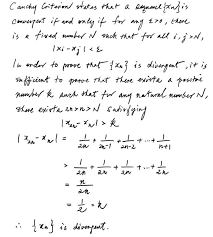 Cauchy Criterion states that a sequence {xn} is
convergent if and only if for any ε>0, there
is a fixed number N such that for all i, j > N,
|xi - xj| < ε.
In order to prove that {xn} is divergent, it is
sufficient to prove that there exists a positive
number k such that for any natural number N,
there exists 2n > n > N satisfying
|x2n - xn| > k
|x2n - xn| = 1/2n + 1/2n-1 + 1/2n-2 + ... + 1/n+1
> 1/2n + 1/2n + 1/2n + ... + 1/2n
= n/2n
= 1/2 = k
∴ {xn} is divergent.